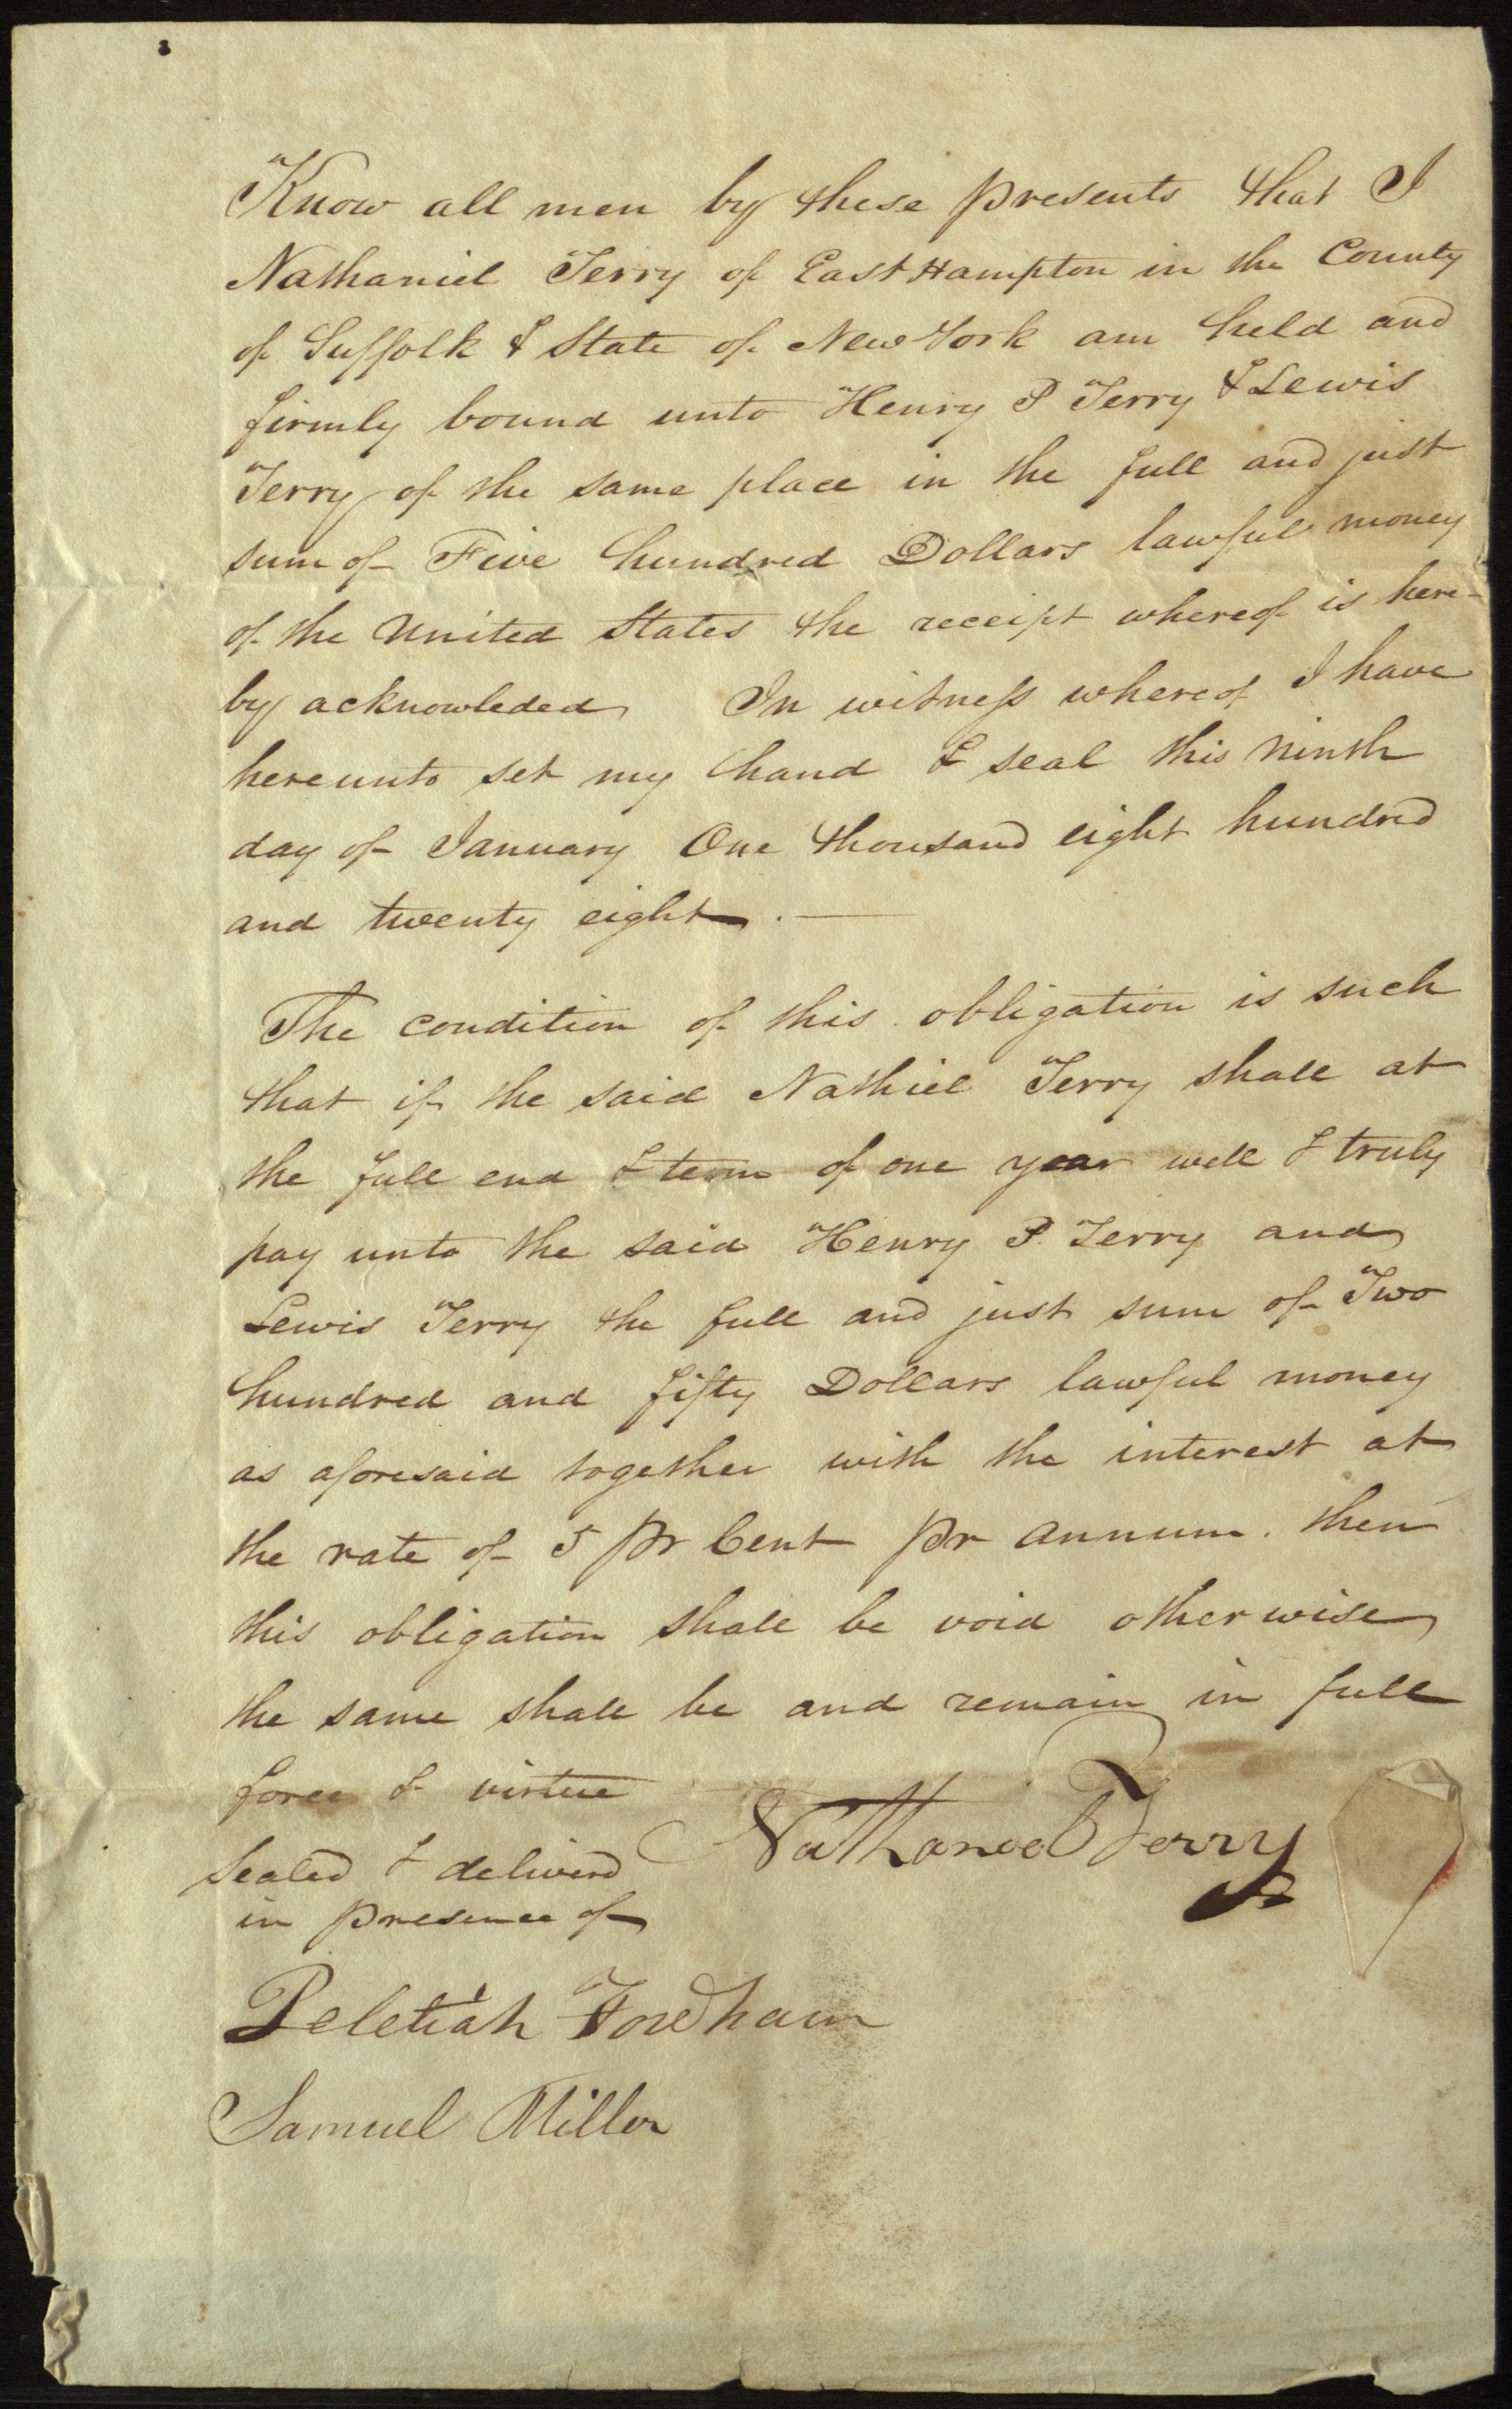 Know all men by these presents that I
Nathaniel Terry of East Hampton in the County
of Suffolk & State of New York am held and
firmly bound unto Henry P Terry & Lewis
Terry of the same place in the full and just
sum of Five hundred Dollars lawful money
of the United States the receipt whereof is here-
by acknowleded In witness whereof I have
hereunto set my hand & seal this ninth
day of January One thousand eight hundred
and twenty eight. —
The condition of this obligation is such
that if the said Nathiel Terry shall at
the full end & term of one year well & truly
pay unto the said Henry P. Terry and
Lewis Terry the full and just sum of Two
hundred and fifty Dollars lawful money
as aforesaid together with the interest at
the rate of 5 pr Cent pr annum. then
this obligation shall be void otherwise
the same shall be and remain in full
force & virtue
Nathaniel Terry
Sealed & deliverd
in presence of
Peletiah Fordham
Samuel Miller